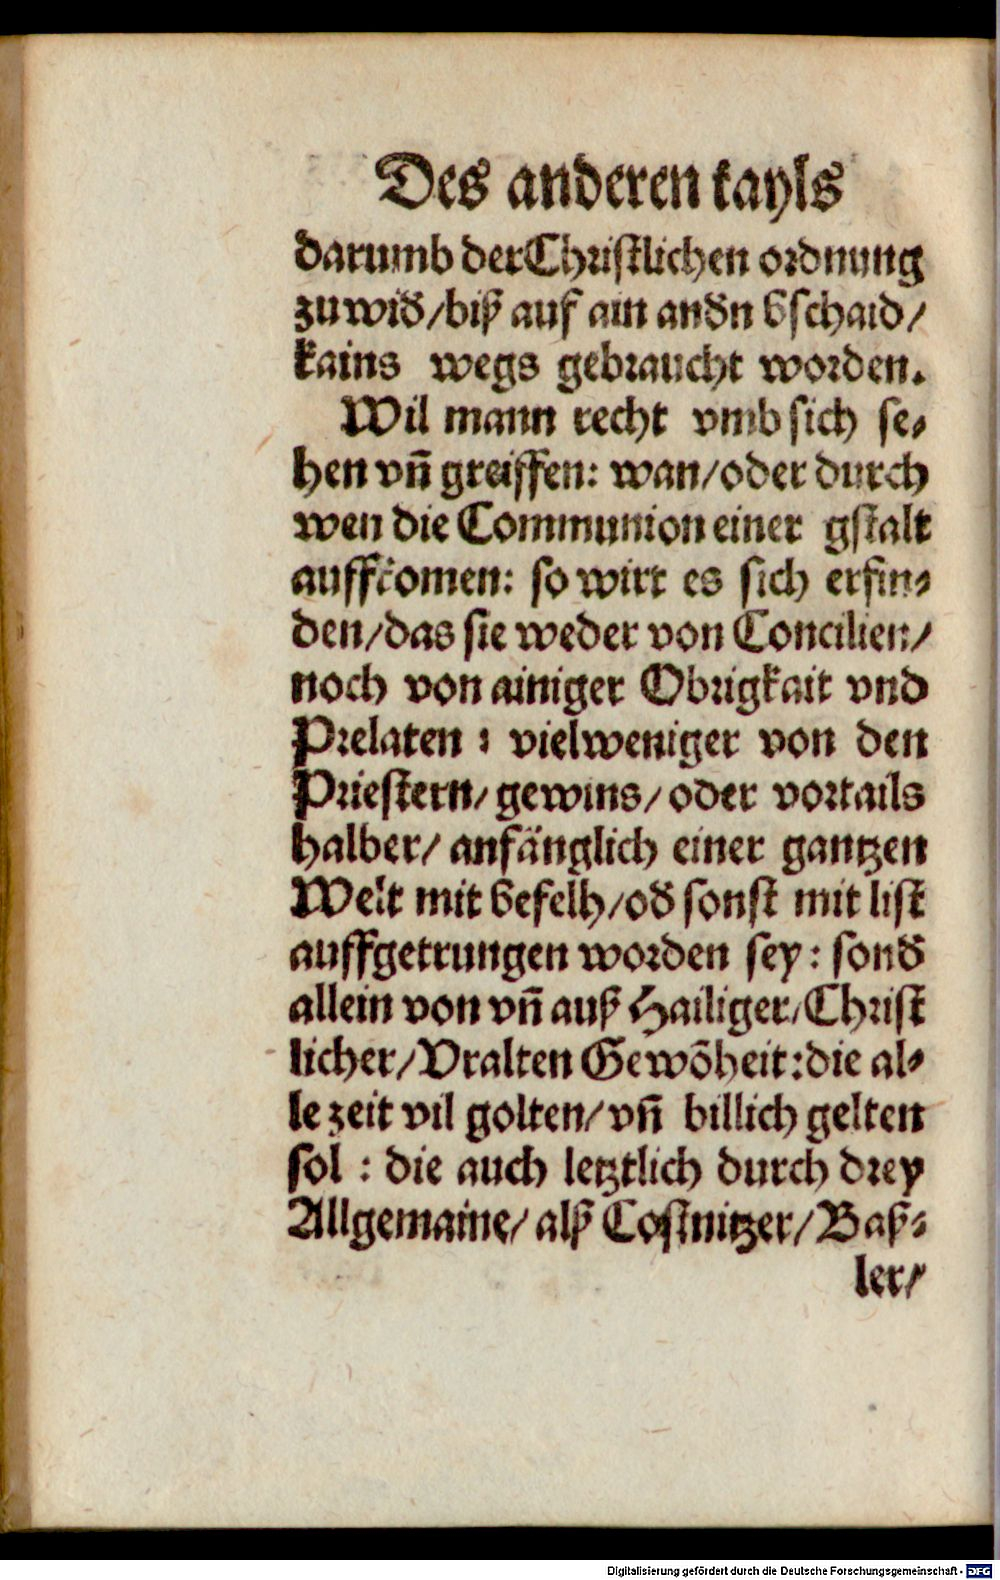 Des anderen tayls
darumb der Christlichen ordnung
zuwid̄/biß auf ain and̄n bschaid/
kains wegs gebraucht worden.
Wil mann recht vmb sich se⸗
hen vn̄ greiffen: wan/oder durch
wen die Communion einer gstalt
auffkomen: so wirt es sich erfin⸗
den/das sie weder von Concilien/
noch von ainiger Obrigkait vnd
Prelaten : vielweniger von den
Priestern/ gewins/ oder vortails
halber/ anfänglich einer gantzen
Welt mit befelh/od̄ sonst mit list
auffgetrungen worden sey: sond̄
allein von vn̄ auß Hailiger/Christ
licher/Vralten Gewōheit:die al⸗
le zeit vil golten/ vn̄ billich gelten
sol : die auch letztlich durch drey
Allgemaine/ alß Costnitzer/Baß⸗
ler/
Digitalisierung gefördert durch die Deutsche Forschungsgemeinschaft - DFG